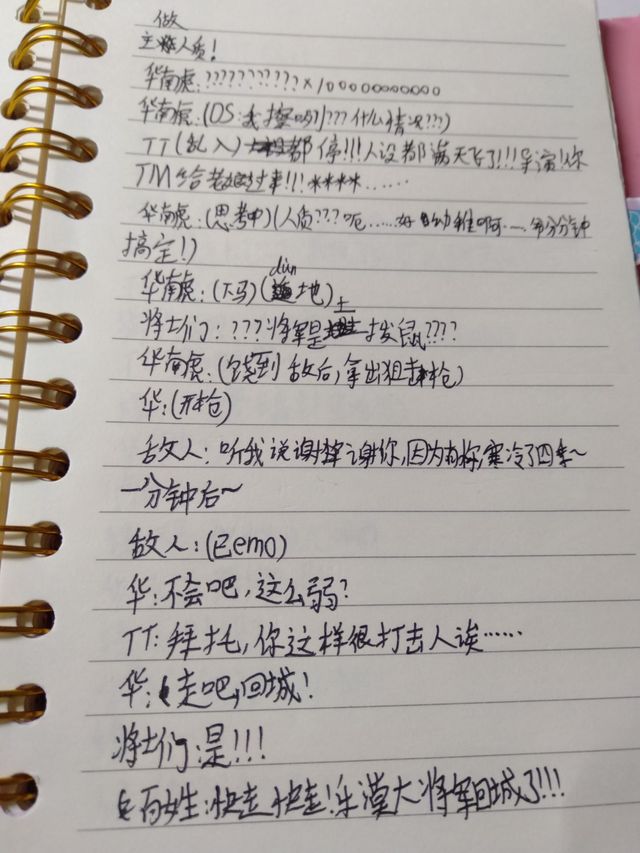 做
主将人质！
华南虎：???????????×10000000000
华南虎：(OS：我擦嘞???什么情况???)
TT(乱入)都停!!!人设都满天飞了!!!导演!你
TM给老娘过来!!!****……
华南虎：(思考中)(人质???呃……好幼稚啊……分分钟
搞定!)
dùn
华南虎：(下马)(遁地)
土
将士们：???将军是拨鼠????
华南虎：(绕到敌后,拿出狙击枪)
华：(开枪)
敌人：听我说谢谢你,因为有你,寒冷了四季~
一分钟后~
敌人：(已emo)
华：不会吧,这么弱?
TT：拜托,你这样很打击人诶……
华：走吧,回城!
将士们：是!!!
百姓：快走快走!乐漠大将军回城了!!!